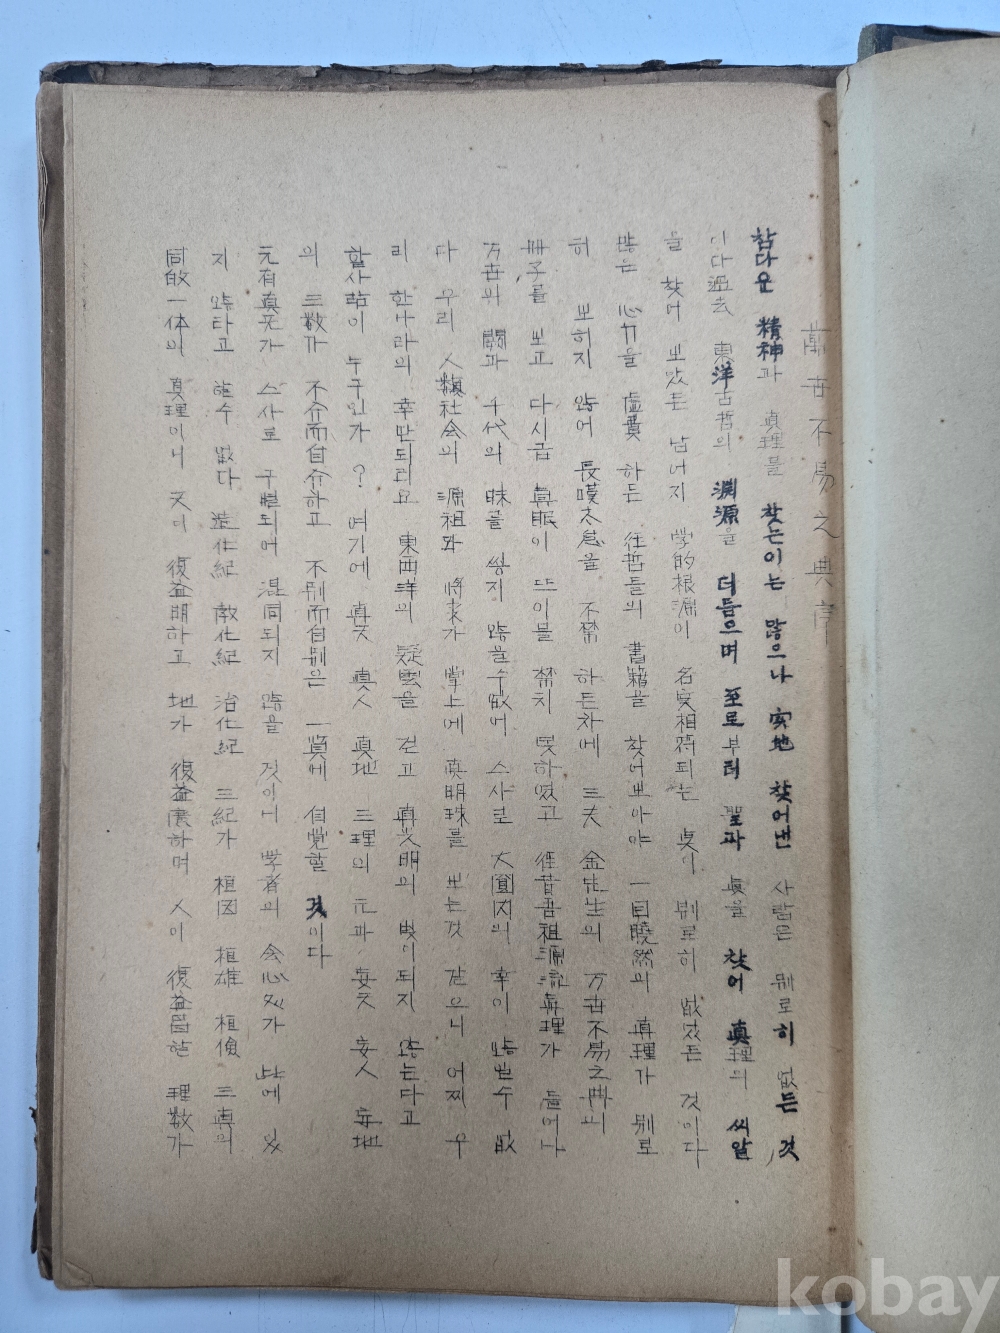 萬世不易之典序
참다운 精神과 眞理를 찾는이는 많으나 实地 찾어낸 사람은 별로히 없든 것
이다 過去 東洋古哲의 渊源을 더듬으며 至로부터 聖과 眞을 찾어 眞理의 씨알
을 찾어 보았든 남어지 学的根源이 名実相符되는 点이 별로히 없었든 것이다
많은 心力을 虛費 하든 往哲들의 書籍을 찾어보아야 一目瞭然의 眞理가 별로
히 보히지 않어 長嘆太息을 不禁 하든차에 三夫 金先生의 万世不易之典의
冊子를 보고 다시금 眞眼이 뜨이믈 禁치 못하였고 往昔吾祖源流眞理가 들어나
万世의 闢과 千代의 昧를 씻지 않을수없어 스사로 大宜内의 幸이 않일수 없
다 우리 人類社会의 源祖와 將來가 掌上에 眞明珠를 보는것 같으니 어찌 우
리 한나라의 幸만되리요 東西洋의 疑雲을 걷고 眞光明의 빛이되지 않는다고
할사람이 누구인가? 여기에 眞天 眞人 眞地 三理의 元과 妄天 妄人 妄地
의 三数가 不介而自介하고 不别而自别은 一覽에 自覚할 것이다
元有眞天가 스사로 구별되어 混同되지 않을 것이니 学者의 会心処가 此에 있
지 않타고 할수 없다 造化紀 敎化紀 治化紀 三紀가 桓因 桓雄 桓儉 三眞의
同啟一体의 眞理이니 天이 復益明하고 地가 復益廣하며 人이 復益昌한 理数가
kobay